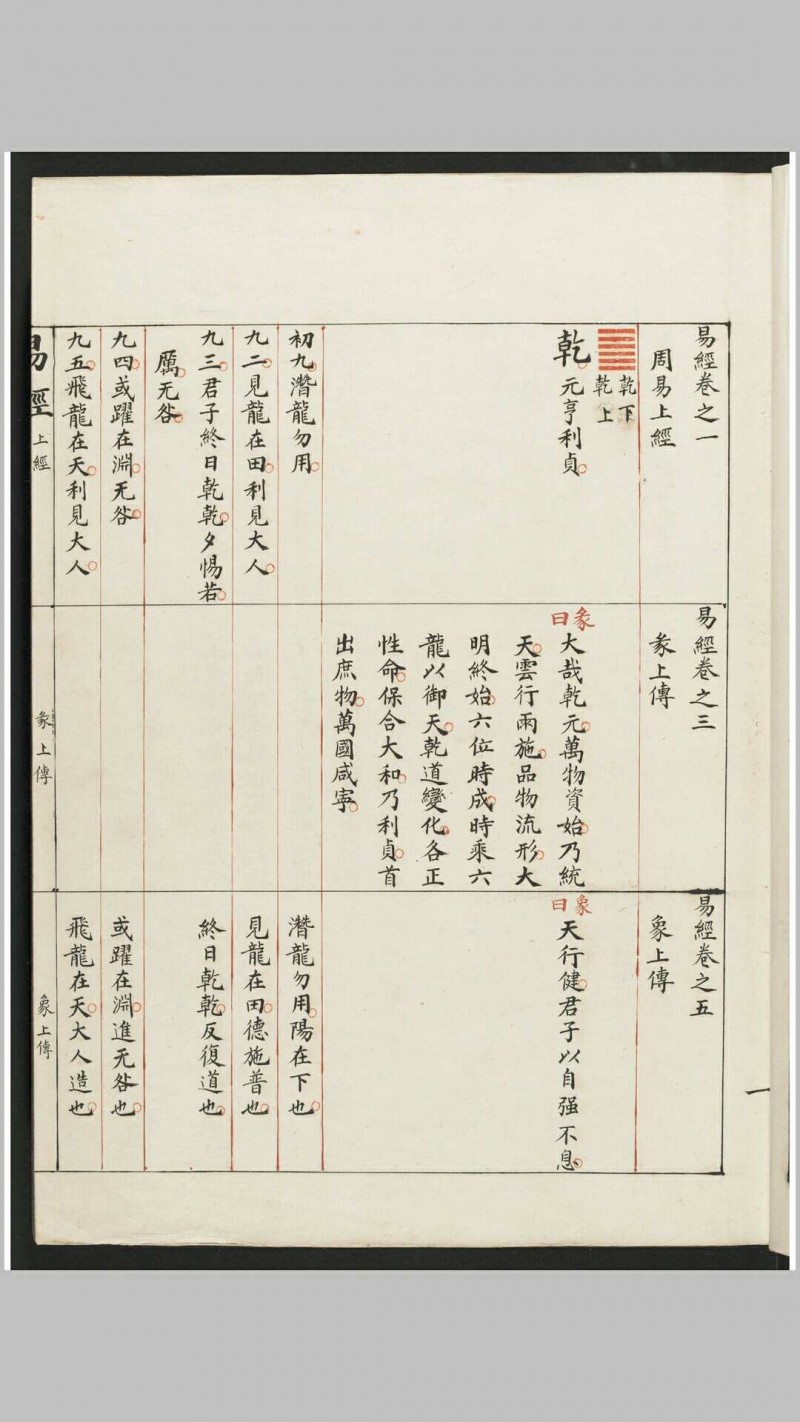 易經卷之一
周易上經
乾下
乾上
乾元亨利貞
初九潛龍勿用
九二見龍在田利見大人
九三君子終日乾乾夕惕若
厲无咎
九四或躍在淵无咎
九五飛龍在天利見大人
易經上經
易經卷之三
彖上傳
彖曰
大哉乾元萬物資始乃統
天雲行雨施品物流形大
明終始六位時成時乘六
龍以御天乾道變化各正
性命保合大和乃利貞首
出庶物萬國咸寧
彖上傳
易經卷之五
象上傳
象曰
天行健君子以自强不息
潛龍勿用陽在下也
見龍在田德施普也
終日乾乾反復道也
或躍在淵進无咎也
飛龍在天大人造也
象上傳
一